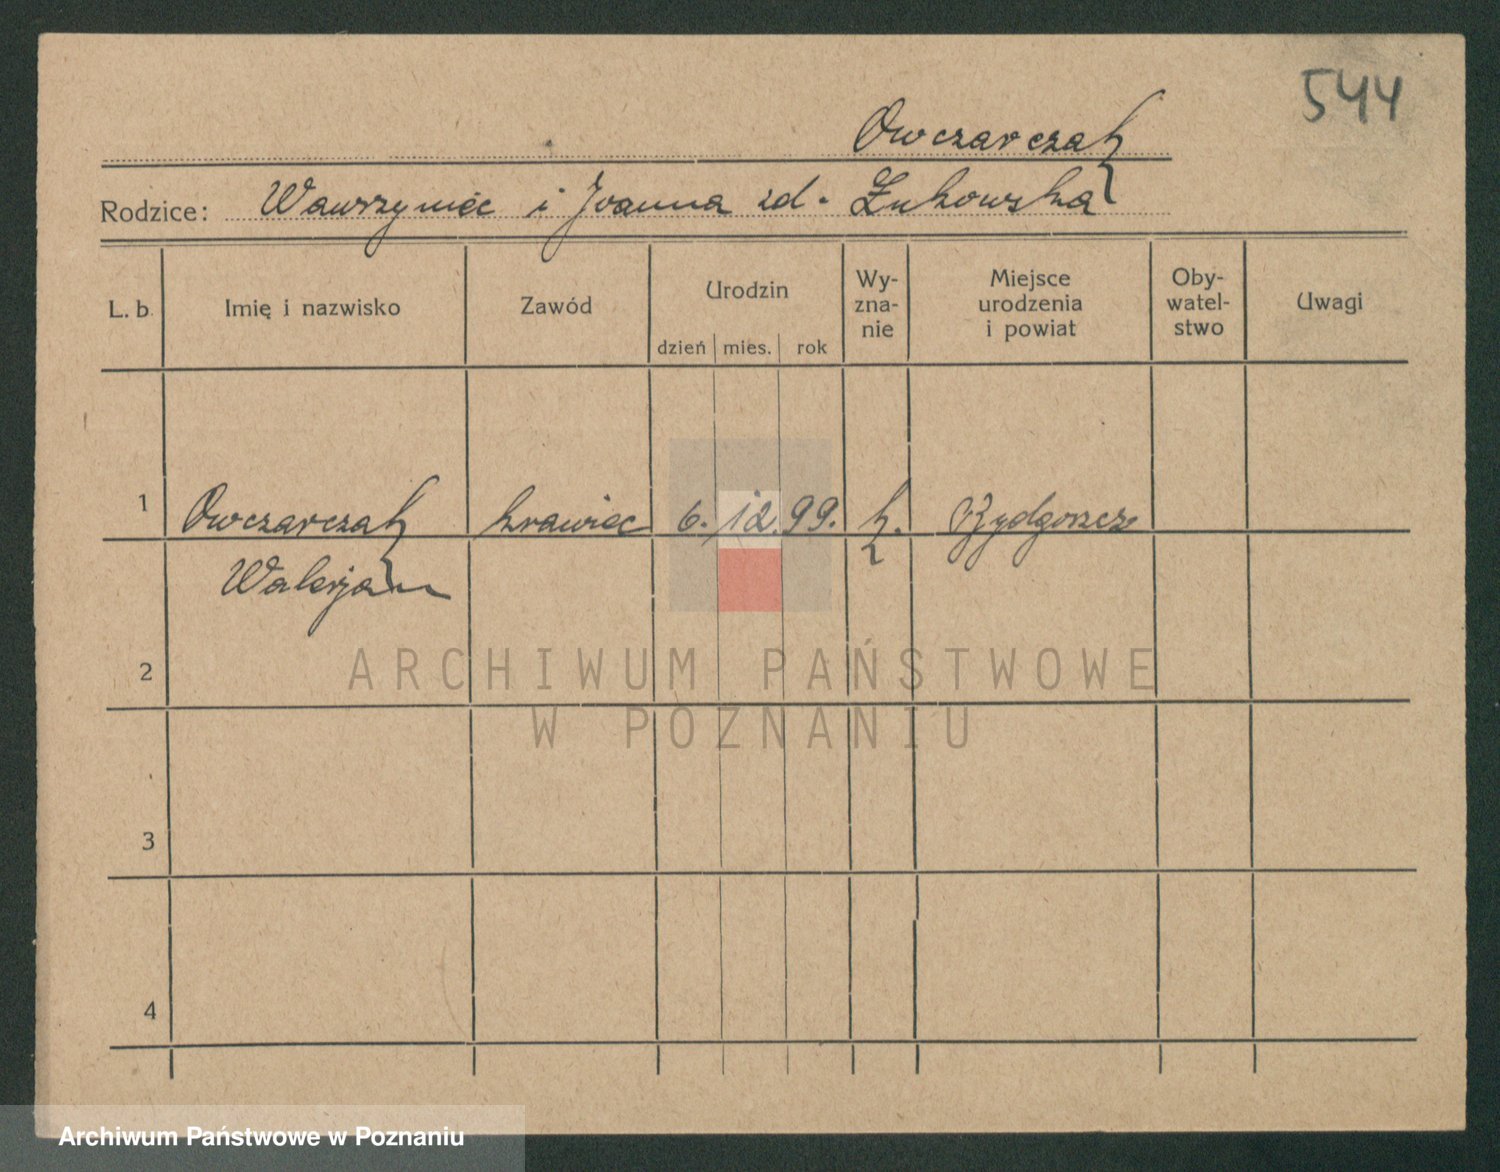 544
Owczarczak
Rodzice: Wawrzyniec i Joanna zd. Żukowska
L. b. Imię i nazwisko Zawód Urodzin dzień mies. rok Wy-zna-nie Miejsce urodzenia i powiat Oby-watel-stwo Uwagi
1 Owczarczak krawiec 6. 12. 99. k. Bydgoszcz
Walerjan
2
ARCHIWUM PAŃSTWOWE
W POZNANIU
3
4
Archiwum Państwowe w Poznaniu